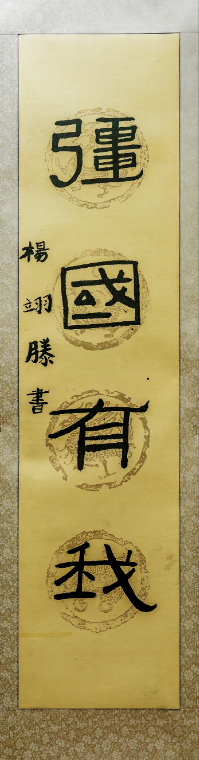 彊國有我
楊翊滕書